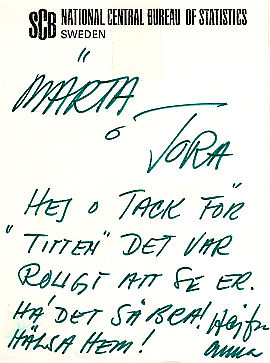 SCB NATIONAL CENTRAL BUREAU OF STATISTICS
SWEDEN
MÄRTA
o TORA
HEJ o TACK FÖR
"TITTEN" DET VAR
ROLIGT ATT SE ER.
HA' DET SÅ BRA! Hej fr
HÄLSA HEM! Anna